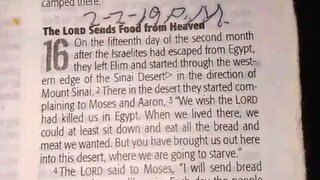 camped there.
2-2-19 P.M.
The LORD Sends Food from Heaven
16 On the fifteenth day of the second month
after the Israelites had escaped from Egypt,
they left Elim and started through the west-
ern edge of the Sinai Desert in the direction of
Mount Sinai. 2 There in the desert they started com-
plaining to Moses and Aaron, 3 “We wish the LORD
had killed us in Egypt. When we lived there, we
could at least sit down and eat all the bread and
meat we wanted. But you have brought us out here
into this desert, where we are going to starve.”
4 The LORD said to Moses, “I will send bread